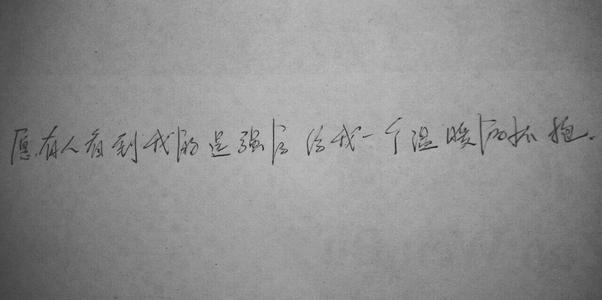 愿有人看到我的逞强后 给我一个温暖的怀抱.